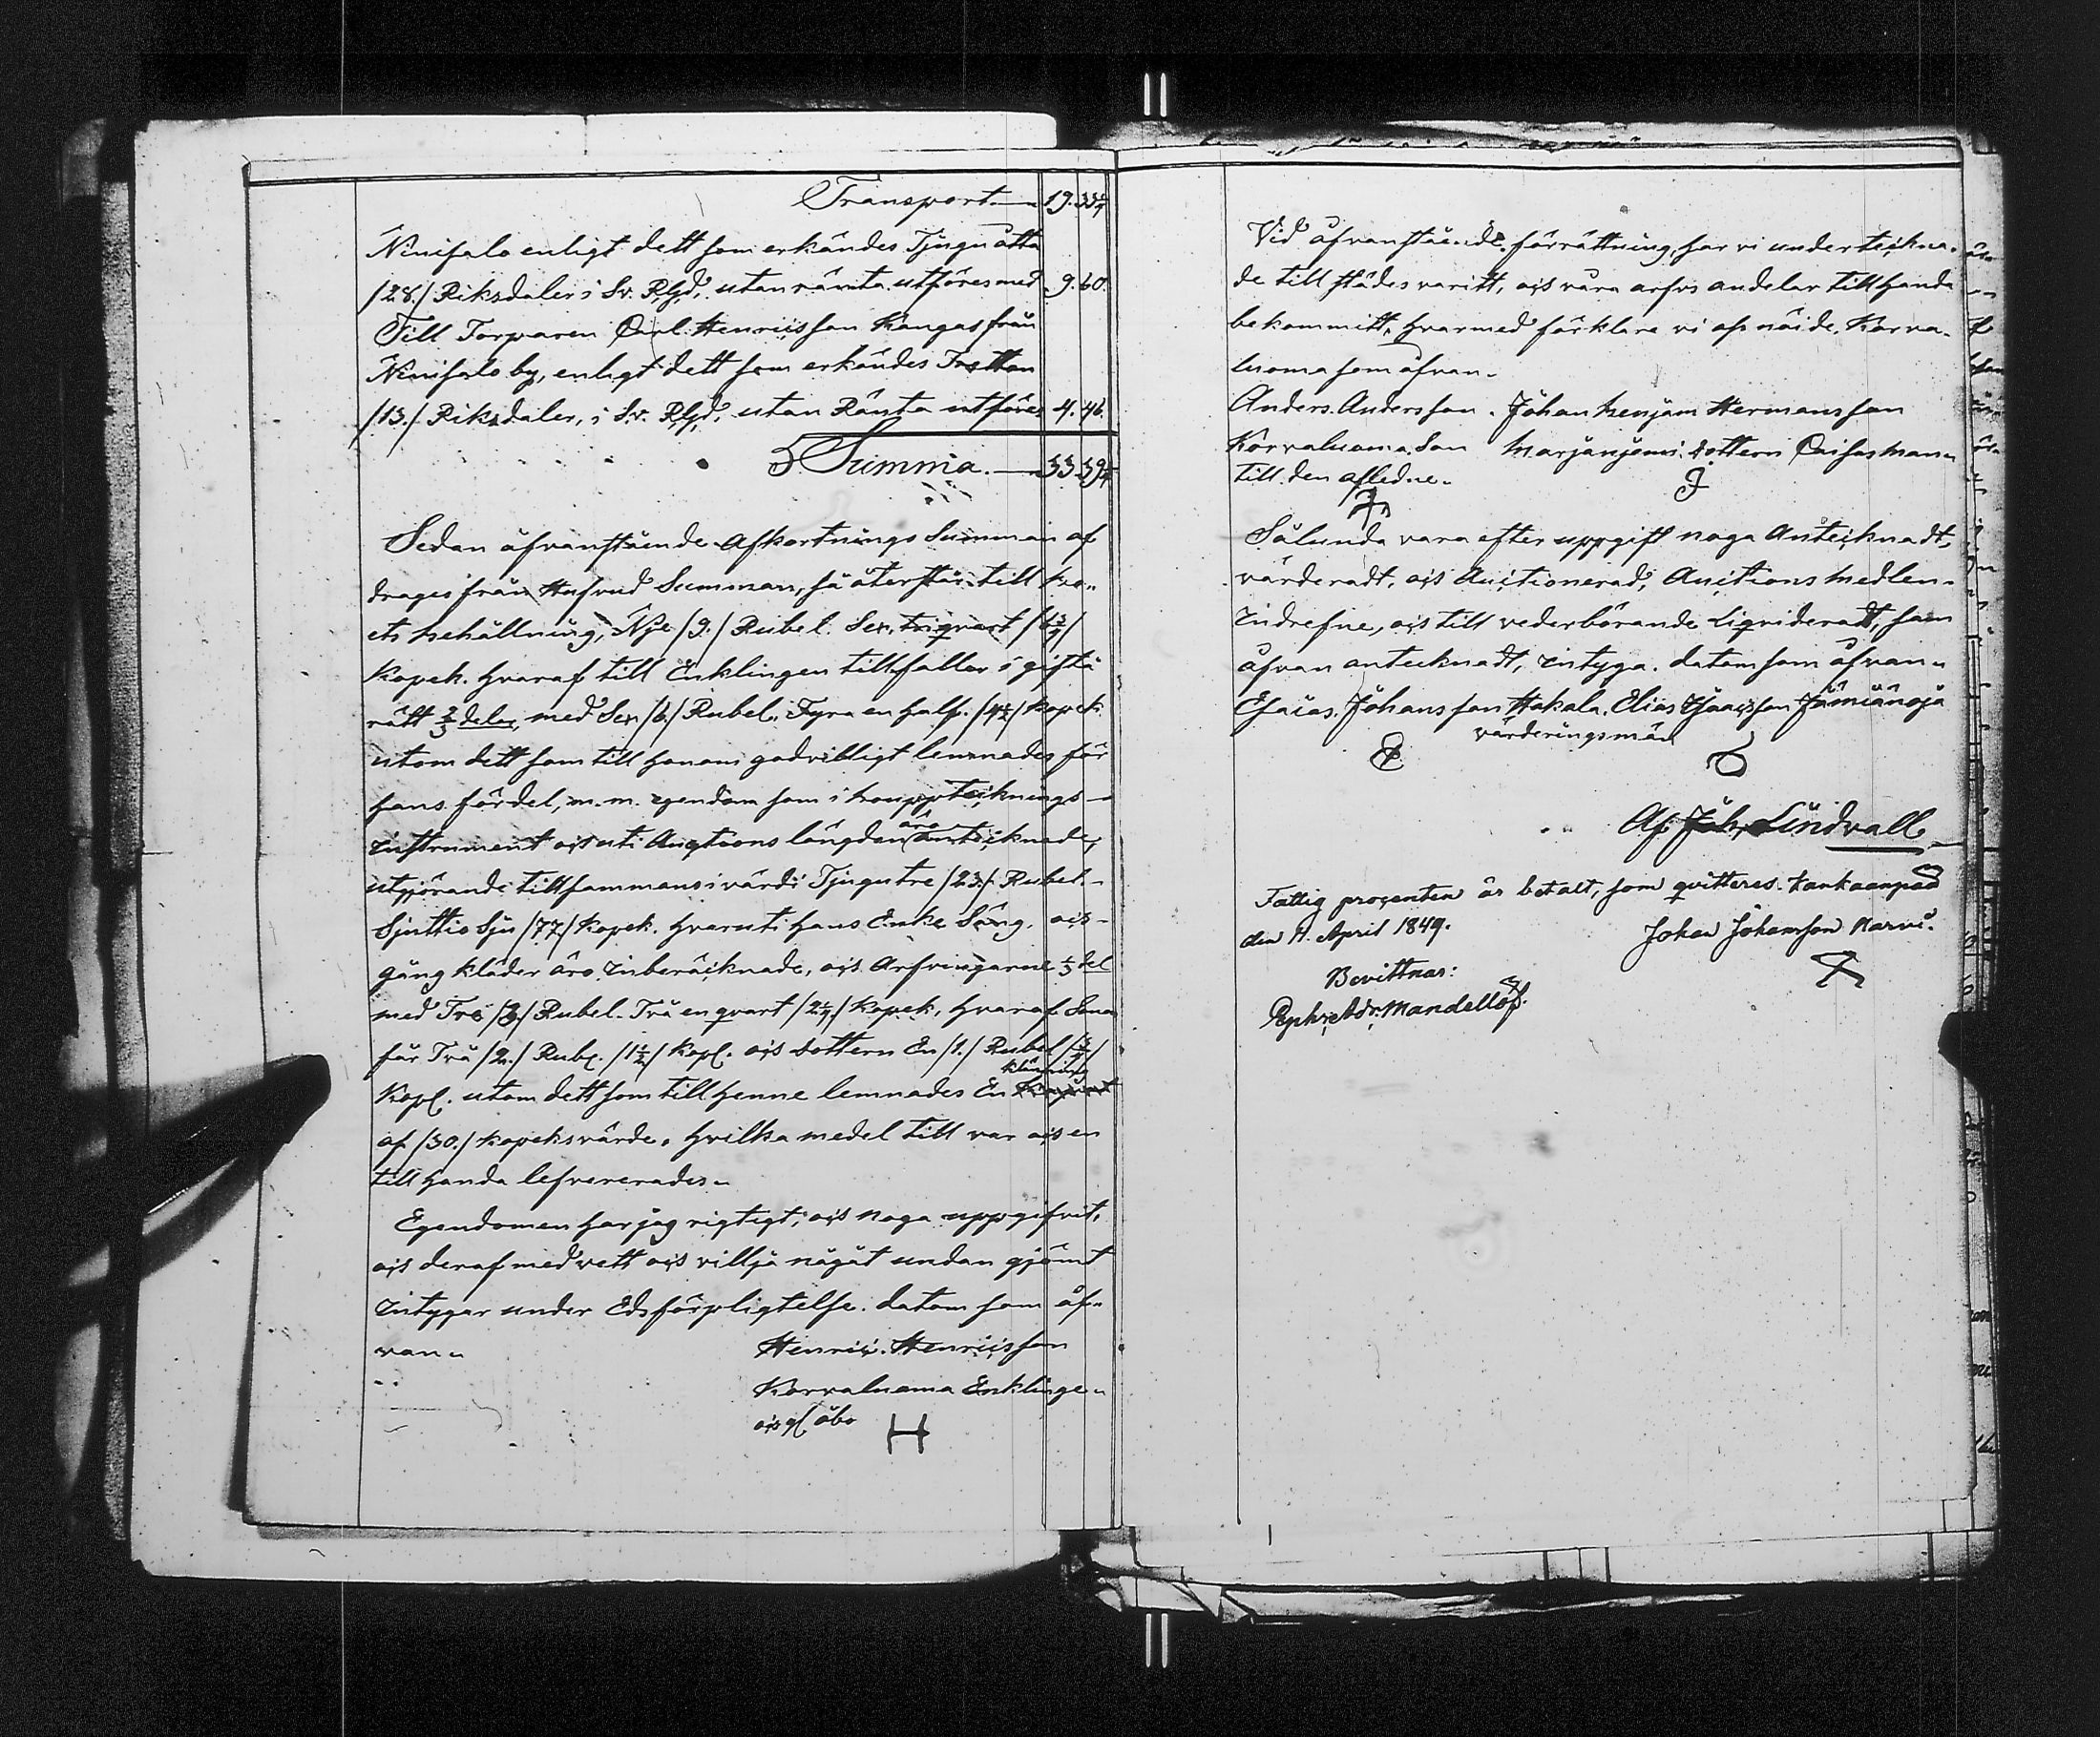 Transport. — 19. 33¼
Ninisalo enligt dett som erkändes Tjuguåtta
/28./ Riksdaler i Sv. Rgd, utan ränta utföres med 9. 60.
Till Torparen Carl Henricsson Kangas från
Ninisalo by, enligt dett som erkändes Tretton
/13./ Riksdaler, i Sv. Rgd, utan Ränta utföres 4. 46.
Summa. — 33. 39¼
Sedan åfvanstående Afkortnings Summan af
drages från Hufvud Summan, så återstår till bo„
ets behållning, Nije /9./ Rubel. Sex, triqvart /6¾/
Kopek. hvaraf till Enklingen tillfaller i gifta
rätt ⅔ delar, med Sex /6/ Rubel. Fyra en half. /4½/ kopek
utom dett som till honom godvilligt lemnades för
hans fördel, m. m. egendom som i bouppteknings—
instrument och uti Auctions längden äro antecknade,
utgjörande tillsammans i värdi Tjugutre /23./ Rubel.
Sjuttio Sju /77/ kopek. hvaruti hans Enke Säng. och
gång kläder äro inberäcknade, och Arfvingarne ⅓ del
med Tre /3/ Rubel. Två en qvart /2¼/ Kopek, hvaraf Sonen
får Två /2./ Rub. /1½/ Kop. och dottern En /1./ Rubel /¾/
Kop. utom dett som till henne lemnades En klänning
af /30./ kopeks värde. hvilka medel till var och en
till handa lefvererades.
Egendomen har jag rigtigt, och noga uppgifvit,
och deraf med vett och villja någåt undan gjömt
intygar under Edsförpligtelse. datom som åf„
van. Henric. Henricsson
Korvaluoma Enklinge.
och gl åbo H
Vid åfvanstående förrättning, har vi underteckna„
de till städes varitt, och våra arfvs andelar till handa
bekommitt, hvarmed förklare vi oss nöide, Korva„
luoma som åfvan.
Anders. Andersson. Johan benjam Hermansson
Korvaluoma, Son Marjanjemi. dottern Caisas man
till den afledne.
Sålunda vara efter uppgift noga Antecknadt,
värderadt. och Auctionerad, Auctions medlen
indrefne, och till vederbörande Liqvideradt, som
åfvan antecknadt, intyga. datom som åfvan.
Esaias. Johansson Hakala. Elias Isaacsson Jämiänojä
värderingsmän
Af. Joh. Lindvall
Fattig procenten är betalt, som qvitteres. Kankaanpää
den 11. April 1849. Johan Johansson Narvi.
Bevittnar:
Ephr. Adr. Mandellöf.